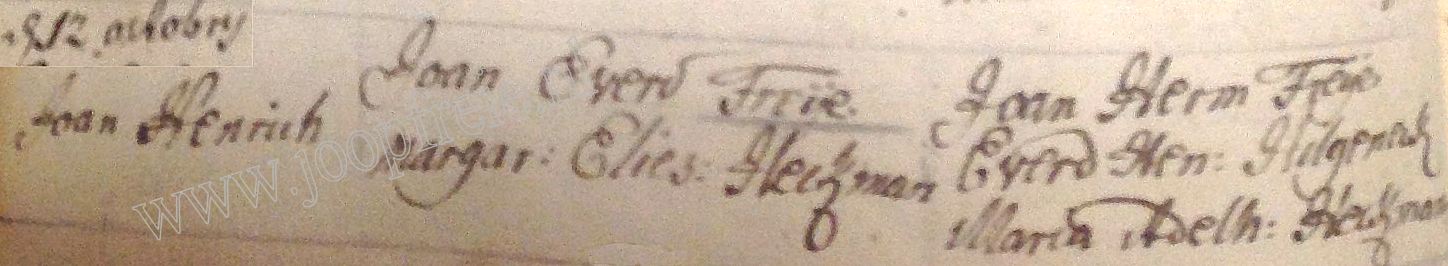 12 octobry
Joan Henrich
Joan Everd Freÿe.
Margar: Elies: Heitzman
Joan Herm Freÿe
Everd Hen:
Maria Adelh: Heitzman
www.joopfre